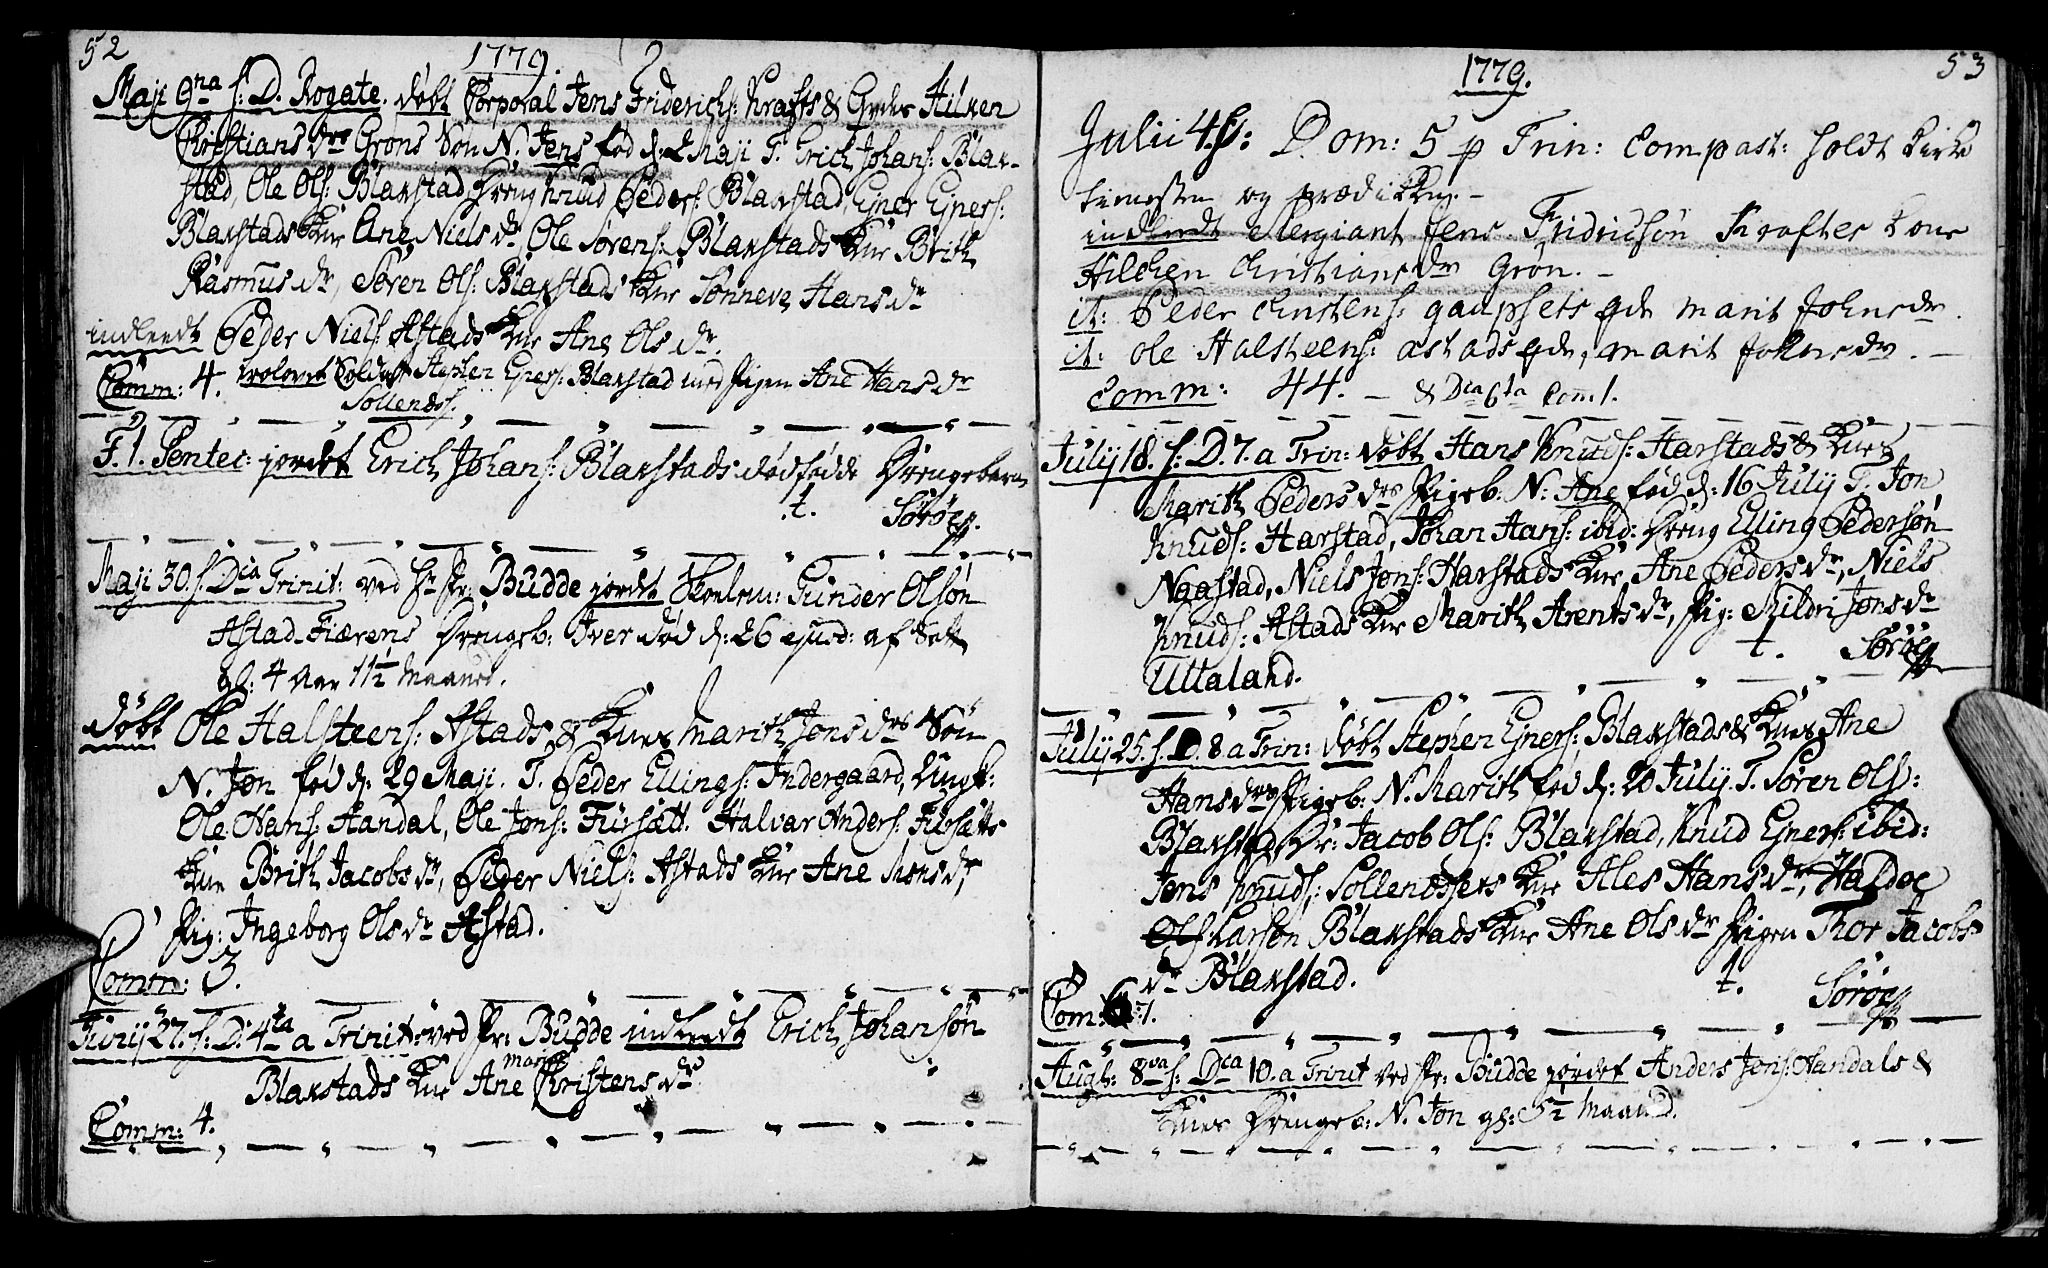 52
1779.
Maji 9na f: D. Rogate. døbt Corporal Jens Friderichs: Krafts & Hilken
Christians dr Grøns Søn N. Jens fød d: 2 Maji T. Erich Johans: Blak-
stad, Ole Ols: Blakstad Dreng Knud Peders: Blakstad, Ejner Ejners:
Blakstads Kne Ane Niels dr, Ole Sørens: Blakstads Kne Brith
Rasmus dr, Søren Ols: Blakstads Kne Sønneve Hans dr
indleedt Peder Niels: Astads Kne Ane Ols dr.
Comm: 4. trolovet Soldat Stephen Ejners: Blakstad med Pigen Ane Hans dr
Sollendss.
F. 1. Pentec: jordet Erich Johans: Blakstads dødfødde Drengebarn
t. Sørøe
Maji 30. f: Dca Trinit: ved Hr Pr: Budde jordet Skolem: Gunder Olsøn
Astad-Fiærens Drengeb: Iver død d: 26 ejusd: af
gl: 4 Aar 11½ Maaned.
døbt Ole Halsteens: Astads & Knes Marith Jons drs Søn
N. Jon fød d: 29 Maji. T. Peder Ellings: Indergaard, Ungk:
Ole Hans: Handal, Ole Jons: Fürsætt. Halvar Anders: Fürsætts
Kne Brith Jacobs dr, Peder Niels: Astads Kne Ane Mons dr,
Pig: Ingeborg Ols dr Astad.
Comm: 3.
Junij 27. f: D: 4ta a Trinit: ved Pr: Budde indleedt Erich Johansøn
Blakstads Kne Ane Marith Christens dr.
Comm: 4.
1779.
53
Julii 4. f: Dom: 5 p Trin: Compast: holdt kirke
tienesten og prædikken.-
indleedt Sergiant Jens Fridricsøn Krafter kone
Hilchen Christians dr Grøn.-
it: Peder Christens: gaupsets qde Marit Johns dr.
it: Ole Halsteens: astads qde, Marit Johns dr.-
Comm: 44.- & Dca 6ta Com 1.
July 18. f: D. 7. a Trin: døbt Hans Knuds: Harstads & Knes
Marith Peders drs Pigeb: N: Ane fød d: 16 July T. Jon
Knuds: Harstad, Johan Hans: ibid: Dreng Elling Pedersøn
Naastad, Niels Jons: Harstads Kne, Ane Peders dr, Niels
Knuds: Astads Kne Marith Arents dr, Pig: Mildri Jons dr
Uttaland. t. Sørøe
July 25. f. D. 8 a Trin: døbt Stephen Ejners: Blakstads & Knes Ane
Hans drs Pigeb: N. Marith fød d: 20 July. T. Søren Ols:
Blakstad, Dr: Jacob Ols: Blakstad, Knud Ejners: ibid:
Jens Knuds: Sollendssets Kne Ales Hans dr, Haldoe
Ols Larsøn Blakstads Kne Ane Ols dr Pigen Thor Jacobs
dr Blakstad. t. Sørøe
Com: 7.
Augt: 8va f: Dca 10. a Trinit ved Pr: Budde jordet Anders Jons: Handals &
Knes Drengeb: N. Jon gl: 5½ Maaned.